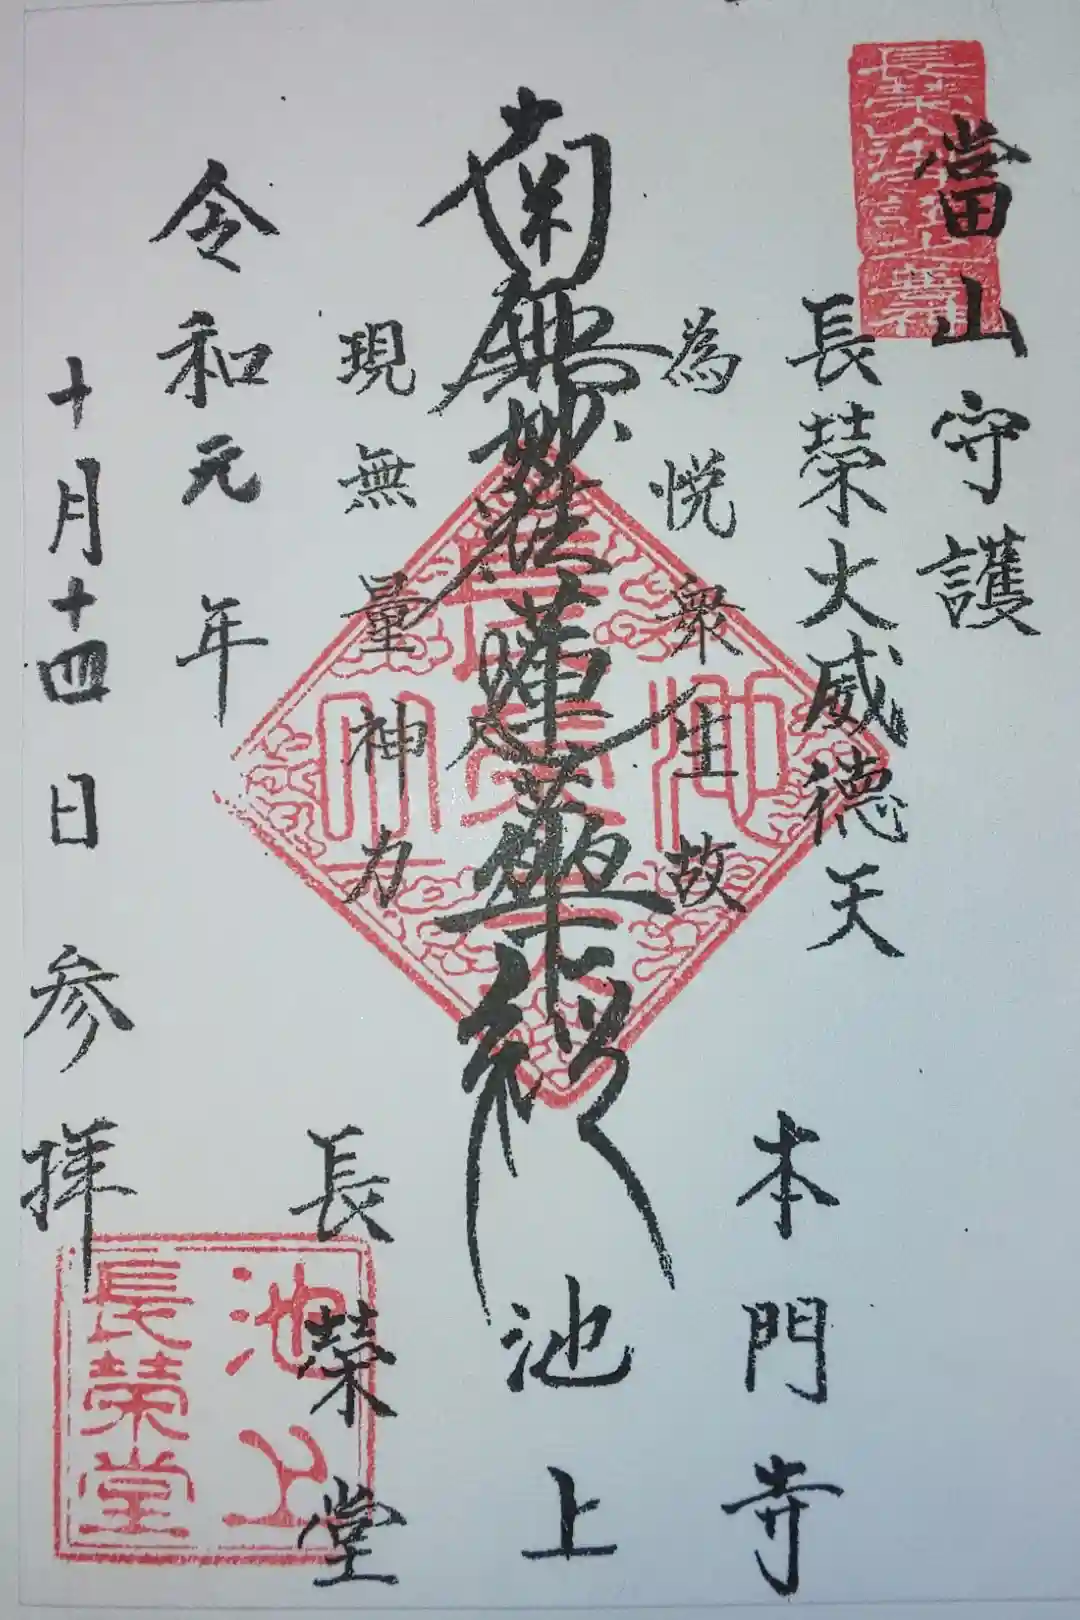 當山守護
長榮大威德天
為悦衆生故
本門寺
南無妙法蓮華経
池上
現無量神力
長榮堂
令和元年
十月十四日参拝
池上
長榮堂